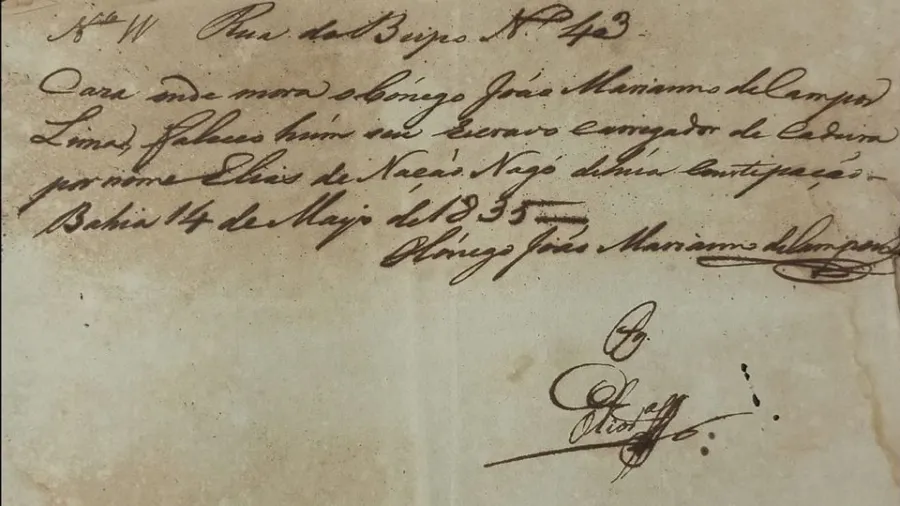 Rua do Bispo Nº 43
Caza onde mora o Cónego João Marianno de Campos
Lima, faleceo húm seu escravo carregador de Cadeira
por nome Elias de Nação Nagó dehúa Constipação
Bahia 14 de Mayo de 1835
O Cónego João Marianno de Campos